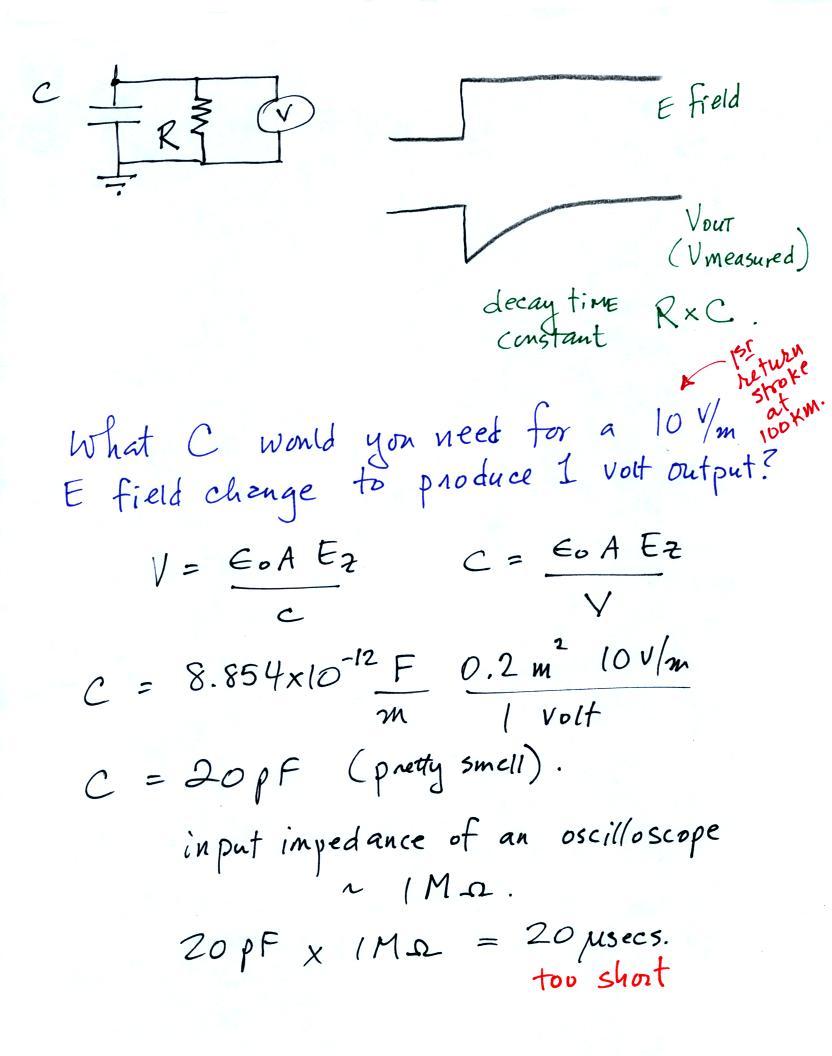 C
R
V
E field
VOUT
(Vmeasured)
decay time
constant
R x C .
1st
return
stroke
at
100 km.
What C would you need for a 10 V/m
E field change to produce 1 volt output?
V = ϵ0 A Ez / c
C = ϵ0 A Ez / V
C = 8.854x10^-12 F/m 0.2 m^2 10 V/m / 1 volt
C = 20 pF (pretty smell).
input impedance of an oscilloscope
~ 1 M Ω.
20 pF x 1MΩ = 20 μsecs.
too short